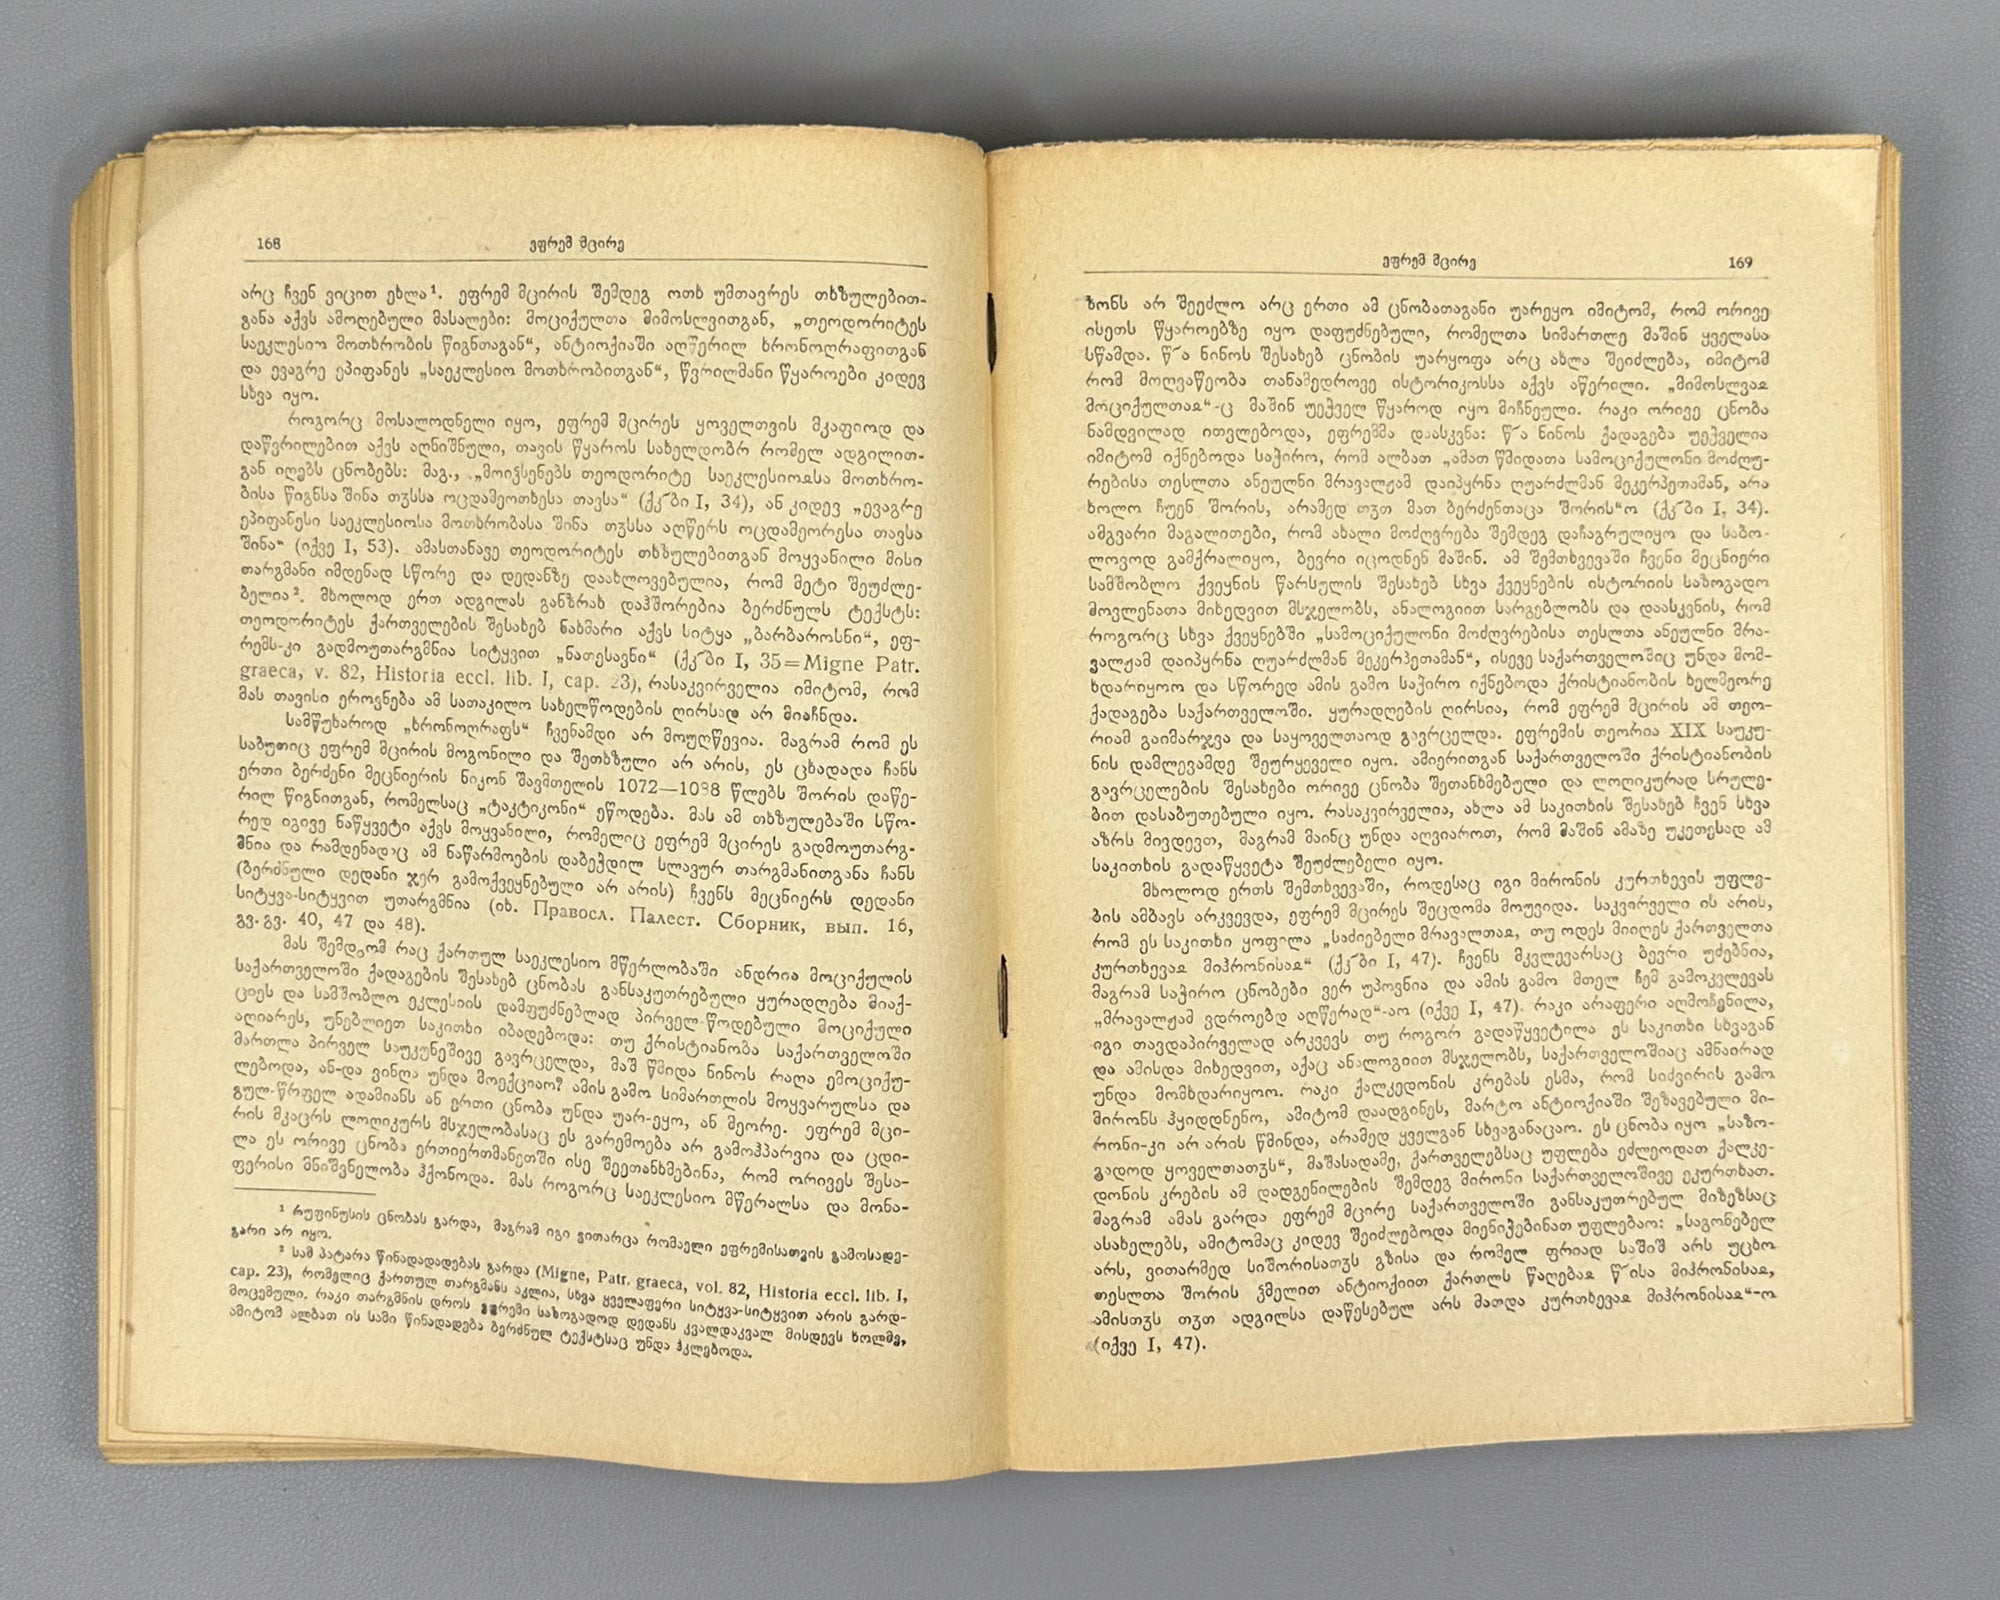 168
ეფრემ მცირე
არც ჩვენ ვიცით ეხლა¹. ეფრემ მცირის შემდეგ ოთხ უმთავრეს თხზულებით-
განა აქვს ამოღებული მასალები: მოციქულთა მიმოსლვითგან, „თეოდორიტეს
საეკლესიო მოთხრობის წიგნთაგან“, ანტიოქიაში აღწერილ ხრონოღრაფითგან
და ევაგრე ეპიფანეს „საეკლესიო მოთხრობითგან“, წვრილმანი წყაროები კიდევ
სხვა იყო.
როგორც მოსალოდნელი იყო, ეფრემ მცირეს ყოველთვის მკაფიოდ და
დაწვრილებით აქვს აღნიშნული, თავის წყაროს სახელდობრ რომელ ადგილით-
გან იღებს ცნობებს: მაგ., „მოიჴსენებს თეოდორიტე საეკლესიოჲსა მოთხრო-
ბისა წიგნსა შინა თჳსსა ოცდამეოთხესა თავსა“ (ქკ˜ბი I, 34), ან კიდევ „ევაგრე
ეპიფანესი საეკლესიოსა მოთხრობასა შინა თჳსსა აღწერს ოცდამეორესა თავსა
შინა“ (იქვე I, 53). ამასთანავე თეოდორიტეს თხზულებითგან მოყვანილი მისი
თარგმანი იმდენად სწორე და დედანზე დაახლოვებულია, რომ მეტი შეუძლე-
ბელია². მხოლოდ ერთ ადგილას განზრახ დაჰშორებია ბერძნულს ტექსტს:
თეოდორიტეს ქართველების შესახებ ნახმარი აქვს სიტყა „ბარბაროსნი“, ეფ-
რემს-კი გადმოუთარგმნია სიტყვით „ნათესავნი“ (ქკ˜ბი I, 35=Migne Patr.
graeca, v. 82, Historia eccl. lib. I, cap. 23), რასაკვირველია იმიტომ, რომ
მას თავისი ეროვნება ამ სათაკილო სახელწოდების ღირსად არ მიაჩნდა.
სამწუხაროდ „ხრონოღრაფს“ ჩვენამდი არ მოუღწევია. მაგრამ რომ ეს
საბუთიც ეფრემ მცირის მოგონილი და შეთხზული არ არის, ეს ცხადადა ჩანს
ერთი ბერძენი მეცნიერის ნიკონ შავმთელის 1072—1088 წლებს შორის დაწე-
რილ წიგნითგან, რომელსაც „ტაკტიკონი“ ეწოდება. მას ამ თხზულებაში სწო-
რედ იგივე ნაწყვეტი აქვს მოყვანილი, რომელიც ეფრემ მცირეს გადმოუთარგ-
მნია და რამდენადაც ამ ნაწარმოების დაბეჭდილ სლავურ თარგმანითგანა ჩანს
(ბერძნული დედანი ჯერ გამოქვეყნებული არ არის) ჩვენს მეცნიერს დედანი
სიტყვა-სიტყვით უთარგმნია (იხ. Правосл. Палест. Сборник, вып. 16,
გვ. გვ. 40, 47 და 48).
მას შემდგომ რაც ქართულ საეკლესიო მწერლობაში ანდრია მოციქულის
საქართველოში ქადაგების შესახებ ცნობას განსაკუთრებული ყურადღება მიაქ-
ციეს და სამშობლო ეკლესიის დამფუძნებლად პირველ-წოდებული მოციქული
აღიარეს, უნებლიეთ საკითხი იბადებოდა: თუ ქრისტიანობა საქართველოში
მართლა პირველ საუკუნეშივე გავრცელდა, მაშ წმიდა ნინოს რაღა ემოციქუ-
ლებოდა, ან-და ვინღა უნდა მოექციაო? ამის გამო სიმართლის მოყვარულსა და
გულ-წრფელ ადამიანს ან ერთი ცნობა უნდა უარ-ეყო, ან მეორე. ეფრემ მცი-
რის მკაცრს ლოღიკურს მსჯელობასაც ეს გარემოება არ გამოჰპარვია და ცდი-
ლა ეს ორივე ცნობა ერთიერთმანეთში ისე შეეთანხმებინა, რომ ორივეს შესა-
ფერისი მნიშვნელობა ჰქონოდა. მას როგორც საეკლესიო მწერალსა და მონა-
¹ რუფინუსის ცნობას გარდა, მაგრამ იგი ვითარცა რომაელი ეფრემისათვის გამოსადე-
გარი არ იყო.
² სამ პატარა წინადადადებას გარდა (Migne, Patr. graeca, vol. 82, Historia eccl. lib. I,
cap. 23), რომელიც ქართულ თარგმანს აკლია, სხვა ყველაფერი სიტყვა-სიტყვით არის გარდ-
მოცემული. რაკი თარგმნის დროს ეფრემი საზოგადოდ დედანს კვალდაკვალ მისდევს ხოლმე,
ამიტომ ალბათ ის სამი წინადადება ბერძნულ ტექსტსაც უნდა ჰკლებოდა.
ეფრემ მცირე
169
ზონს არ შეეძლო არც ერთი ამ ცნობათაგანი უარეყო იმიტომ, რომ ორივე
ისეთს წყაროებზე იყო დაფუძნებული, რომელთა სიმართლე მაშინ ყველასა
სწამდა. წ˜ა ნინოს შესახებ ცნობის უარყოფა არც ახლა შეიძლება, იმიტომ
რომ მოღვაწეობა თანამედროვე ისტორიკოსსა აქვს აწერილი. „მიმოსლვაჲ
მოციქულთაჲ“-ც მაშინ უეჭველ წყაროდ იყო მიჩნეული. რაკი ორივე ცნობა
ნამდვილად ითვლებოდა, ეფრემმა დაასკვნა: წ˜ა ნინოს ქადაგება უეჭველია
იმიტომ იქნებოდა საჭირო, რომ ალბათ „ამათ წმიდათა სამოციქულონი მოძღუ-
რებისა თესლთა ანეულნი მრავალჟამ დაიპყრნა ღუარძლმან მეკერპეთამან, არა
ხოლო ჩუენ შორის, არამედ თჳთ მათ ბერძენთაცა შორის“ო (ქკ˜ბი I, 34).
ამგვარი მაგალითები, რომ ახალი მოძღვრება შემდეგ დაჩაგრულიყო და საბო-
ლოვოდ გამქრალიყო, ბევრი იცოდნენ მაშინ. ამ შემთხვევაში ჩვენი მეცნიერი
სამშობლო ქვეყნის წარსულის შესახებ სხვა ქვეყნების ისტორიის საზოგადო
მოვლენათა მიხედვით მსჯელობს, ანალოგიით სარგებლობს და დაასკვნის, რომ
როგორც სხვა ქვეყნებში „სამოციქულონი მოძღვრებისა თესლთა ანეულნი მრა-
ვალჟამ დაიპყრნა ღუარძლმან მეკერპეთამან“, ისევე საქართველოშიც უნდა მომ-
ხდარიყოო და სწორედ ამის გამო საჭირო იქნებოდა ქრისტიანობის ხელმეორე
ქადაგება საქართველოში. ყურადღების ღირსია, რომ ეფრემ მცირის ამ თეო-
რიამ გაიმარჯვა და საყოველთაოდ გავრცელდა. ეფრემის თეორია XIX საუკუ-
ნის დამლევამდე შეურყეველი იყო. ამიერითგან საქართველოში ქრისტიანობის
გავრცელების შესახები ორივე ცნობა შეთანხმებული და ლოღიკურად სრულე-
ბით დასაბუთებული იყო. რასაკვირველია, ახლა ამ საკითხის შესახებ ჩვენ სხვა
აზრს მივდევთ, მაგრამ მაინც უნდა აღვიაროთ, რომ მაშინ ამაზე უკეთესად ამ
საკითხის გადაწყვეტა შეუძლებელი იყო.
მხოლოდ ერთს შემთხვევაში, როდესაც იგი მირონის კურთხევის უფლე-
ბის ამბავს არკვევდა, ეფრემ მცირეს შეცდომა მოუვიდა. საკვირველი ის არის,
რომ ეს საკითხი ყოფილა „საძიებელი მრავალთაჲ, თუ ოდეს მიიღეს ქართველთა
კურთხევაჲ მიჰრონისაჲ“ (ქკ˜ბი I, 47). ჩვენს მკვლევარსაც ბევრი უძებნია,
მაგრამ საჭირო ცნობები ვერ უპოვნია და ამის გამო მთელ ჩემ გამოკვლევას
„მრავალჟამ ვდროებდ აღწერად“-აო (იქვე I, 47). რაკი არაფერი აღმოჩენილა,
იგი თავდაპირველად არკვევს თუ როგორ გადაწყვეტილა ეს საკითხი სხვაგან
და ამისდა მიხედვით, აქაც ანალოგიით მსჯელობს, საქართველოშიაც ამნაირად
უნდა მომხდარიყოო. რაკი ქალკედონის კრებას ესმა, რომ სიძვირის გამო
მირონს ჰყიდდნენო, ამიტომ დაადგინეს, მარტო ანტიოქიაში შეზავებული მი-
რონი-კი არ არის წმინდა, არამედ ყველგან სხვაგანაცაო. ეს ცნობა იყო „საზო-
გადოდ ყოველთათჳს“, მაშასადამე, ქართველებსაც უფლება ეძლეოდათ ქალკე-
დონის კრების ამ დადგენილების შემდეგ მირონი საქართველოშივე ეკურთხათ.
მაგრამ ამას გარდა ეფრემ მცირე საქართველოში განსაკუთრებულ მიზეზსაც
ასახელებს, ამიტომაც კიდევ შეიძლებოდა მიენიჭებინათ უფლებაო: „საგონებელ
არს, ვითარმედ სიშორისათჳს გზისა და რომელ ფრიად საშიშ არს უცხო
თესლთა შორის ჴმელით ანტიოქიით ქართლს წაღებაჲ წ˜ისა მიჰრონისაჲ,
ამისთჳს თჳთ ადგილსა დაწესებულ არს მათდა კურთხევაჲ მიჰრონისაჲ“-ო
(იქვე I, 47).